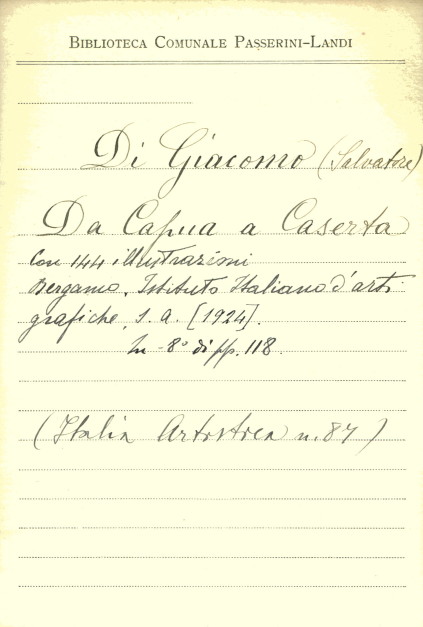 BIBLIOTECA COMUNALE PASSERINI-LANDI
Di Giacomo (Salvatore)
Da Capua a Caserta
Con 144 illustrazioni
Bergamo, Istituto Italiano d'arti
grafiche, s. a. [1924].
In -8° di pp. 118.
(Italia Artistica n. 87)